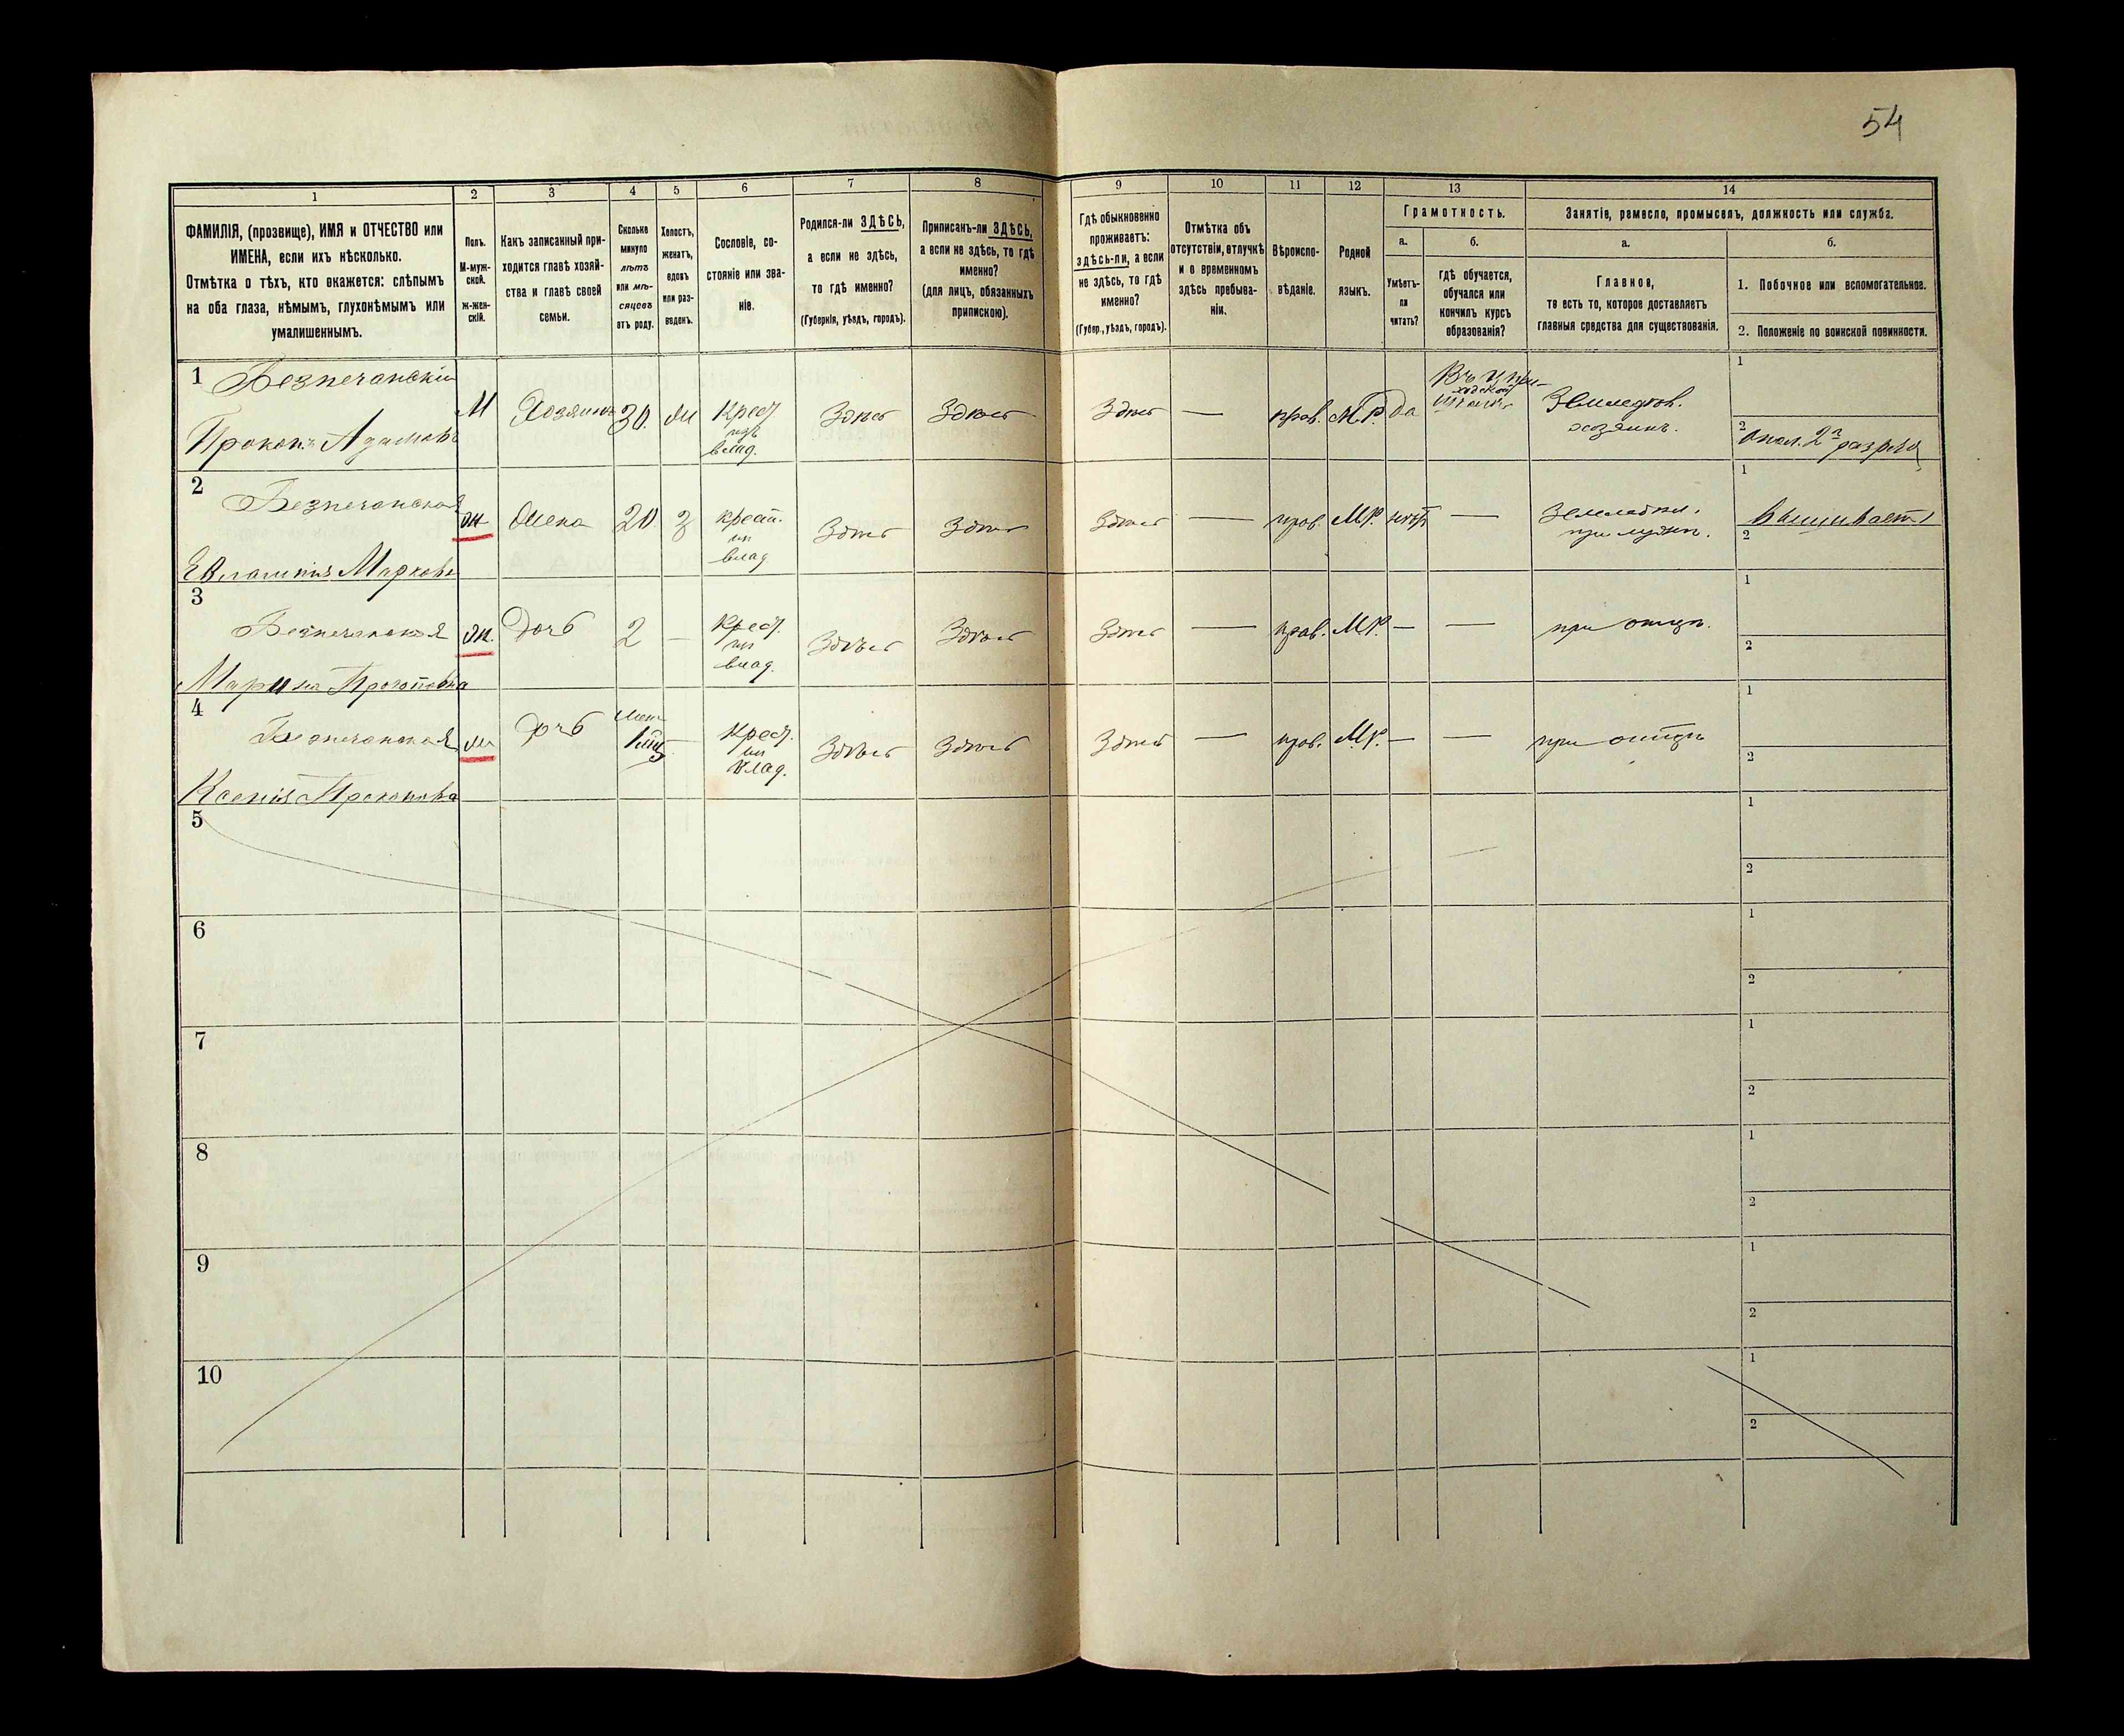 54
1 2 3 4 5 6 7 8 9 10 11 12 13 14
ФАМИЛІЯ, (прозвище), ИМЯ и ОТЧЕСТВО или
ИМЕНА, если ихъ нѣсколько.
Отмѣтка о тѣхъ, кто окажется: слѣпымъ
на оба глаза, нѣмымъ, глухонѣмымъ или
умалишеннымъ.
Полъ.
М-муж-
ской.
ж-жен-
скій.
Какъ записанный при-
ходится главѣ хозяй-
ства и главѣ своей
семьи.
Сколько
минуло
лѣтъ
или мѣ-
сяцевъ
отъ роду.
Холостъ,
женатъ,
вдовъ
или раз-
веденъ.
Сословіе, со-
стояніе или зва-
ніе.
Родился-ли ЗДѢСЬ,
а если не здѣсь,
то гдѣ именно?
(Губернія, уѣздъ, городъ).
Приписанъ-ли ЗДѢСЬ,
а если не здѣсь, то гдѣ
именно?
(для лицъ, обязанныхъ
припискою).
Гдѣ обыкновенно
проживаетъ:
здѣсь-ли, а если
не здѣсь, то гдѣ
именно?
(Губер., уѣздъ, городъ).
Отмѣтка объ
отсутствіи, отлучкѣ
и о временномъ
здѣсь пребыва-
ніи.
Вѣроиспо-
вѣданіе.
Родной
языкъ.
Грамотность.
а.
Умѣетъ-
ли
читать?
б.
гдѣ обучается,
обучался или
кончилъ курсъ
образованія?
Занятіе, ремесло, промыселъ, должность или служба.
а.
Главное,
то есть то, которое доставляетъ
главныя средства для существованія.
б.
1. Побочное или вспомогательное.
2. Положеніе по воинской повинности.
1 Безпечанскій
Прокопъ Адамовъ
М Хозяинъ 30. ж Крест.
изъ
влад.
Здѣсь Здѣсь Здѣсь — прав. М.Р. да
Въ ц. при-
ходской
школѣ
Земледѣл.
хозяинъ.
1
2 Опол. 2 разряд
2 Безпечанская
Евлампія Маркова
ж Жена 20 з крест.
из
влад
Здѣсь Здѣсь Здѣсь — прав. М.Р. нетъ —
Земледѣл.
при мужѣ.
1 Вышиваетъ
2
3 Безпечанская
Марина Прокоповна
ж. Дочь 2 — Крест.
из
влад.
Здѣсь Здѣсь Здѣсь прав. М.Р. — — при отцѣ.
1
2
4 Безпечанская
Ксенія Прокопова
ж Дочь — Крест.
из
влад.
Здѣсь Здѣсь Здѣсь — прав. М.Р. — — при отцѣ
1
2
5
1
2
6
1
2
7
1
2
8
1
2
9
1
2
10
1
2